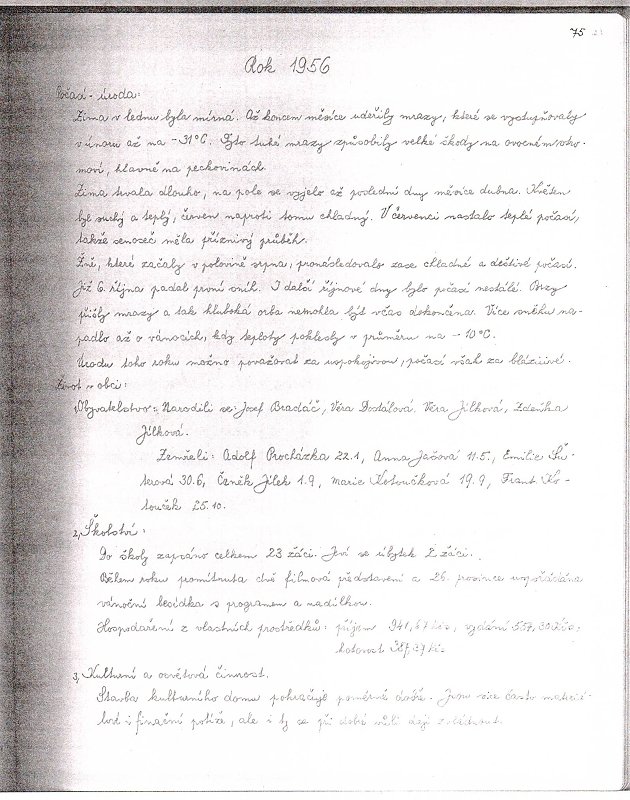 75
Rok 1956
Počasí - úroda:
Zima v lednu byla mírná. Až koncem měsíce udeřily mrazy, které se vystupňovaly
v únoru až na -31°C. Tyto tuhé mrazy způsobily velké škody na ovocném stro-
moví, hlavně na peckovinách.
Zima trvala dlouho, na pole se vyjelo až poslední dny měsíce dubna. Květen
byl suchý a teplý, červen naproti tomu chladný. V červenci nastalo teplé počasí,
takže senoseč měla příznivý průběh.
Žně, které začaly v polovině srpna, pronásledovalo zase chladné a deštivé počasí.
Již 6. října padal první sníh. I další říjnové dny bylo počasí nestálé. Brzy
přišly mrazy a tak hluboká orba nemohla být včas dokončena. Více sněhu na-
padlo až o vánocích, kdy teploty poklesly v průměru na -10°C.
Úrodu toho roku možno považovat za uspokojivou, počasí však za bláznivé.
Život v obci:
1, Obyvatelstvo: Narodili se: Josef Bradáč, Věra Dostálová, Věra Jílková, Zdeňka
Jílková.
Zemřeli: Adolf Procházka 22.1, Anna 11.5., Emilie Šu-
terová 30.6, Čeněk Jílek 1.9, Marie Kotoučková 19.9, Frant. Ko-
touček 25.10.
2, Školství:
Do školy zapsáno celkem 23 žáci. Jeví se úbytek 2 žáci.
Během roku promítnuta dvě filmová představení a 26. prosince uspořádána
vánoční besídka s programem a nadílkou.
Hospodaření z vlastních prostředků: příjem 941,67 Kčs, vydání 557,30 Kčs,
hotovost 387,37 Kčs.
3, Kulturní a osvětová činnost.
Stavba kulturního domu pokračuje poměrně dobře. Jsou sice často
i finanční potíže, ale i ty se při dobré vůli dají zvládnout.